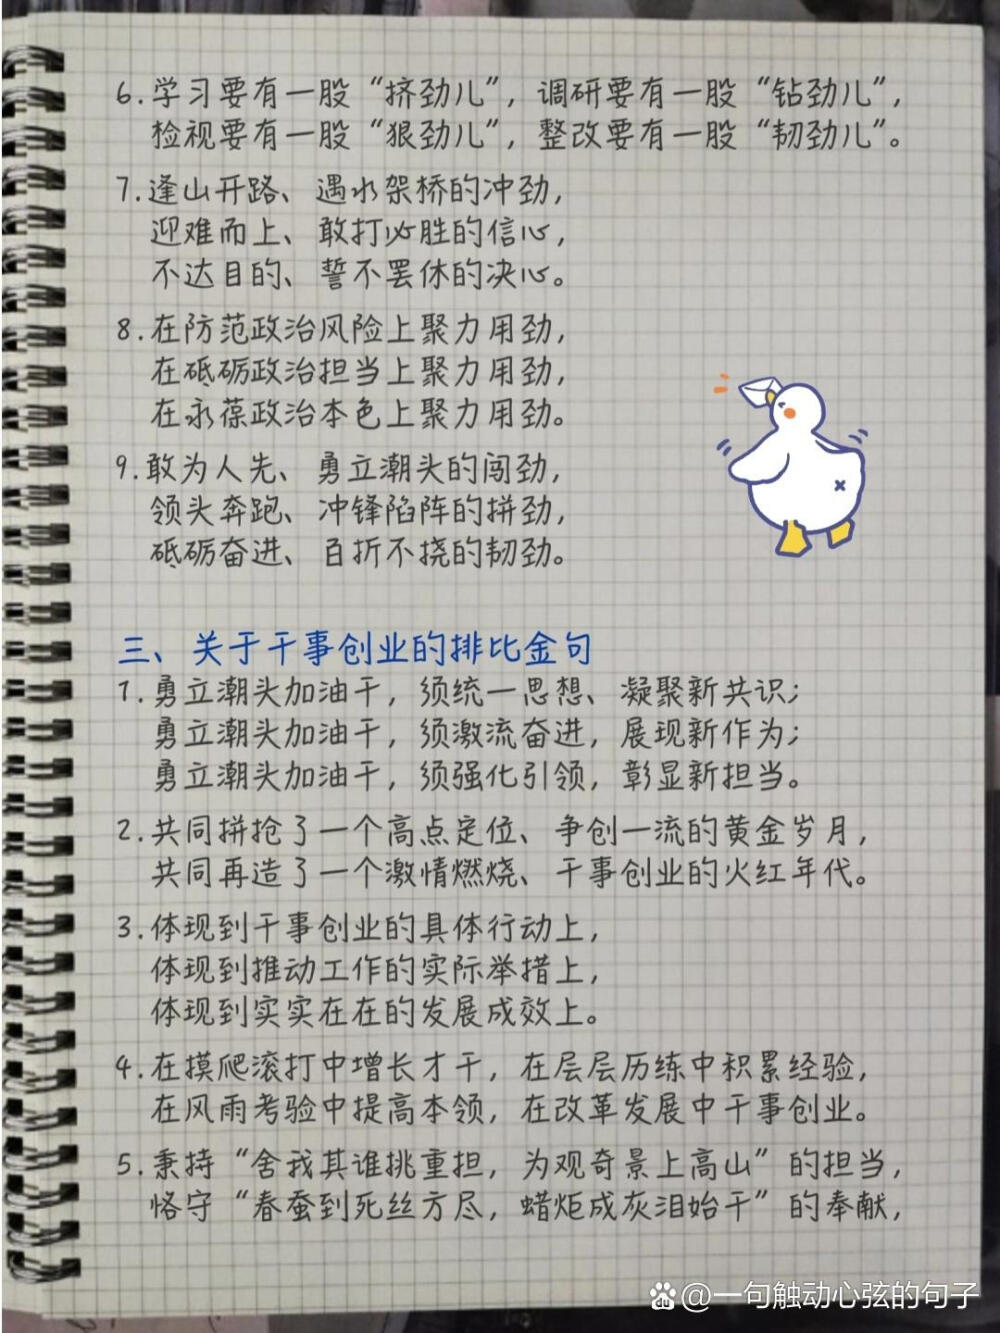 6.学习要有一股“挤劲儿”，调研要有一股“钻劲儿”，
检视要有一股“狠劲儿”，整改要有一股“韧劲儿”。
7.逢山开路、遇水架桥的冲劲，
迎难而上、敢打必胜的信心，
不达目的、誓不罢休的决心。
8.在防范政治风险上聚力用劲，
在砥砺政治担当上聚力用劲，
在永葆政治本色上聚力用劲。
9.敢为人先、勇立潮头的闯劲，
领头奔跑、冲锋陷阵的拼劲，
砥砺奋进、百折不挠的韧劲。
三、关于干事创业的排比金句
1.勇立潮头加油干，须统一思想、凝聚新共识；
勇立潮头加油干，须激流奋进，展现新作为；
勇立潮头加油干，须强化引领，彰显新担当。
2.共同拼抢了一个高点定位、争创一流的黄金岁月，
共同再造了一个激情燃烧、干事创业的火红年代。
3.体现到干事创业的具体行动上，
体现到推动工作的实际举措上，
体现到实实在在的发展成效上。
4.在摸爬滚打中增长才干，在层层历练中积累经验，
在风雨考验中提高本领，在改革发展中干事创业。
5.秉持“舍我其谁挑重担，为观奇景上高山”的担当，
恪守“春蚕到死丝方尽，蜡炬成灰泪始干”的奉献，
du @一句触动心弦的句子